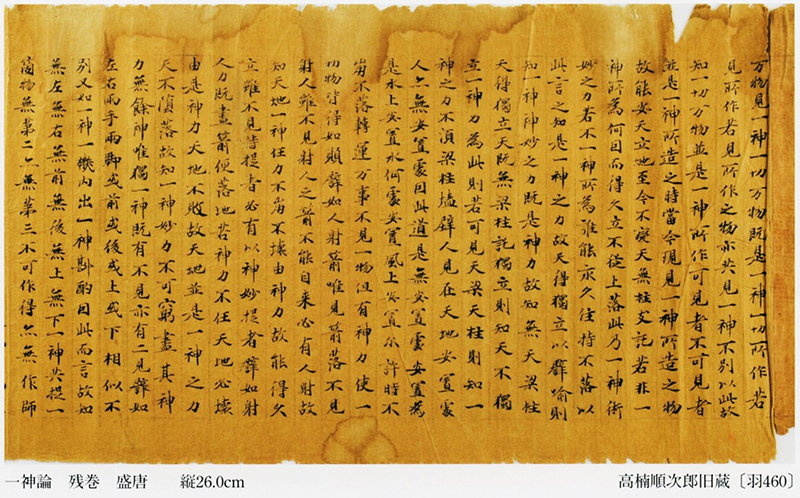 万物見一神一切万物既是一神一切所作若
見所作若見所作之物亦共見一神不別以此故
知一切万物並是一神所作可見者不可見者
並是一神所造之時當今現見一神所造之物
故能安天立地至今不變天無柱支託若非一
神所為何因而得久立不從上落此乃一神術
妙之力若不一神所為誰能永久住持不落以
此言之知是一神之力故天得獨立以譬喻則
知一神神妙之力既是神力故知無天梁柱
天得獨立天既無梁柱託獨立則知天不獨
立一神力為此則若可見天梁天柱則知一
神之力不須梁柱墻壁人見在天地安置處
人亦無安置處因此道是無安置處安置為
是水上安置水何處安置風上安置尒許時不
崩不落轉運万事不見一物但有神力使一
切物皆得如願譬如人射箭唯見箭落不見
射人雖不見射人之箭不能自来必有人射故
知天地一神任力不崩不壊由神力故能得久
立雖不見持提者必有以神妙提者譬如射
人力既盡箭便落地若神力不任天地必壊
由是神力天地不敗故天地並是一神之力
天不墮落故知一神妙力不可窮盡其神
力無餘神唯獨一神既有不見亦有二見譬如
左右兩手兩脚或前或後或上或下相似不
別又如一神一機内出一神斟酌因此而言故知
無左無右無前無後無上無下一神共捉一
箇物無第二亦無第三不可作得亦無作師
一神論　残巻　盛唐　　縦26.0cm
高楠順次郎旧蔵〔羽460〕